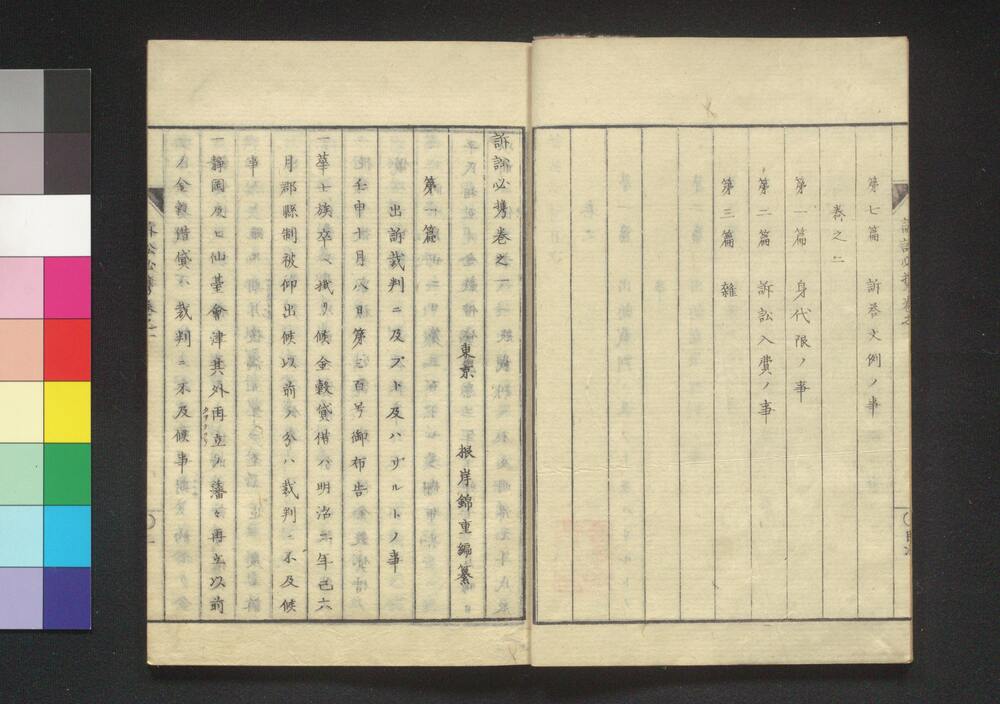 第七篇 訴答文例ノ事
巻之二
第一篇 身代限ノ事
第二篇 訴訟入費ノ事
第三篇 雑
訴訟必携巻之一
東京 根岸錦重編纂
第一篇
出訴裁判ニ及ブト及ハザルトノ事
壬申十月八日第三百号御布告
一華士族卒ヘ拭リ候金穀貸借ハ明治二年己六
月郡縣制被仰出候以前ノ分ハ裁判ニ不及候
事
一静岡及ヒ仙臺會津其外再立ノ藩々再立以前
ノ金穀借貸ハ裁判ニ不及候事